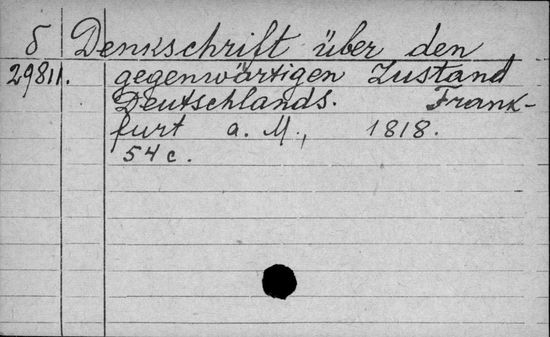 δ Denkschrift über den
29811. gegenwärtigen Zustand
Deutschlands. Frank-
furt a. M., 1818.
54 c.